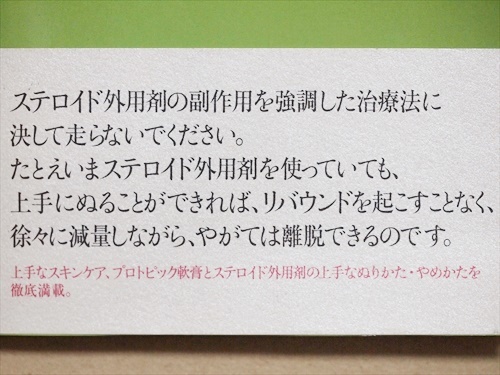 ステロイド外用剤の副作用を強調した治療法に
決して走らないでください。
たとえいまステロイド外用剤を使っていても、
上手にぬることができれば、リバウンドを起こすことなく、
徐々に減量しながら、やがては離脱できるのです。
上手なスキンケア、プロトピック軟膏とステロイド外用剤の上手なぬりかた・やめかたを
徹底満載。